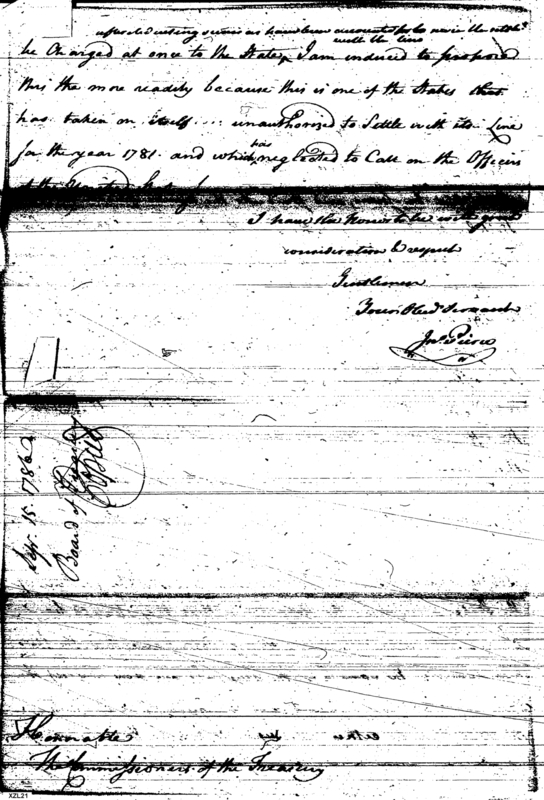 with the line
be Charged at once to the State, I am induced to propose
this the more readily because this is one of the States that
has taken on itself unauthorized to Settle with its Line
has
for the year 1781. and which neglected to Call on the Officers
of the United States
I have the Honor to be with great
consideration & respect
Gentlemen
Your Obed. Servant
Jno. Pierce
Sepr. 15. 1786
Board of Treasury
Honorable
The Commissioners of the Treasury
XZL21